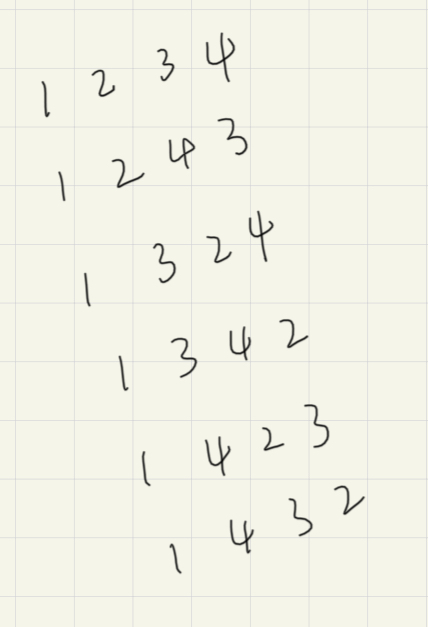 1 2 3 4
1 2 4 3
1 3 2 4
1 3 4 2
1 4 2 3
1 4 3 2